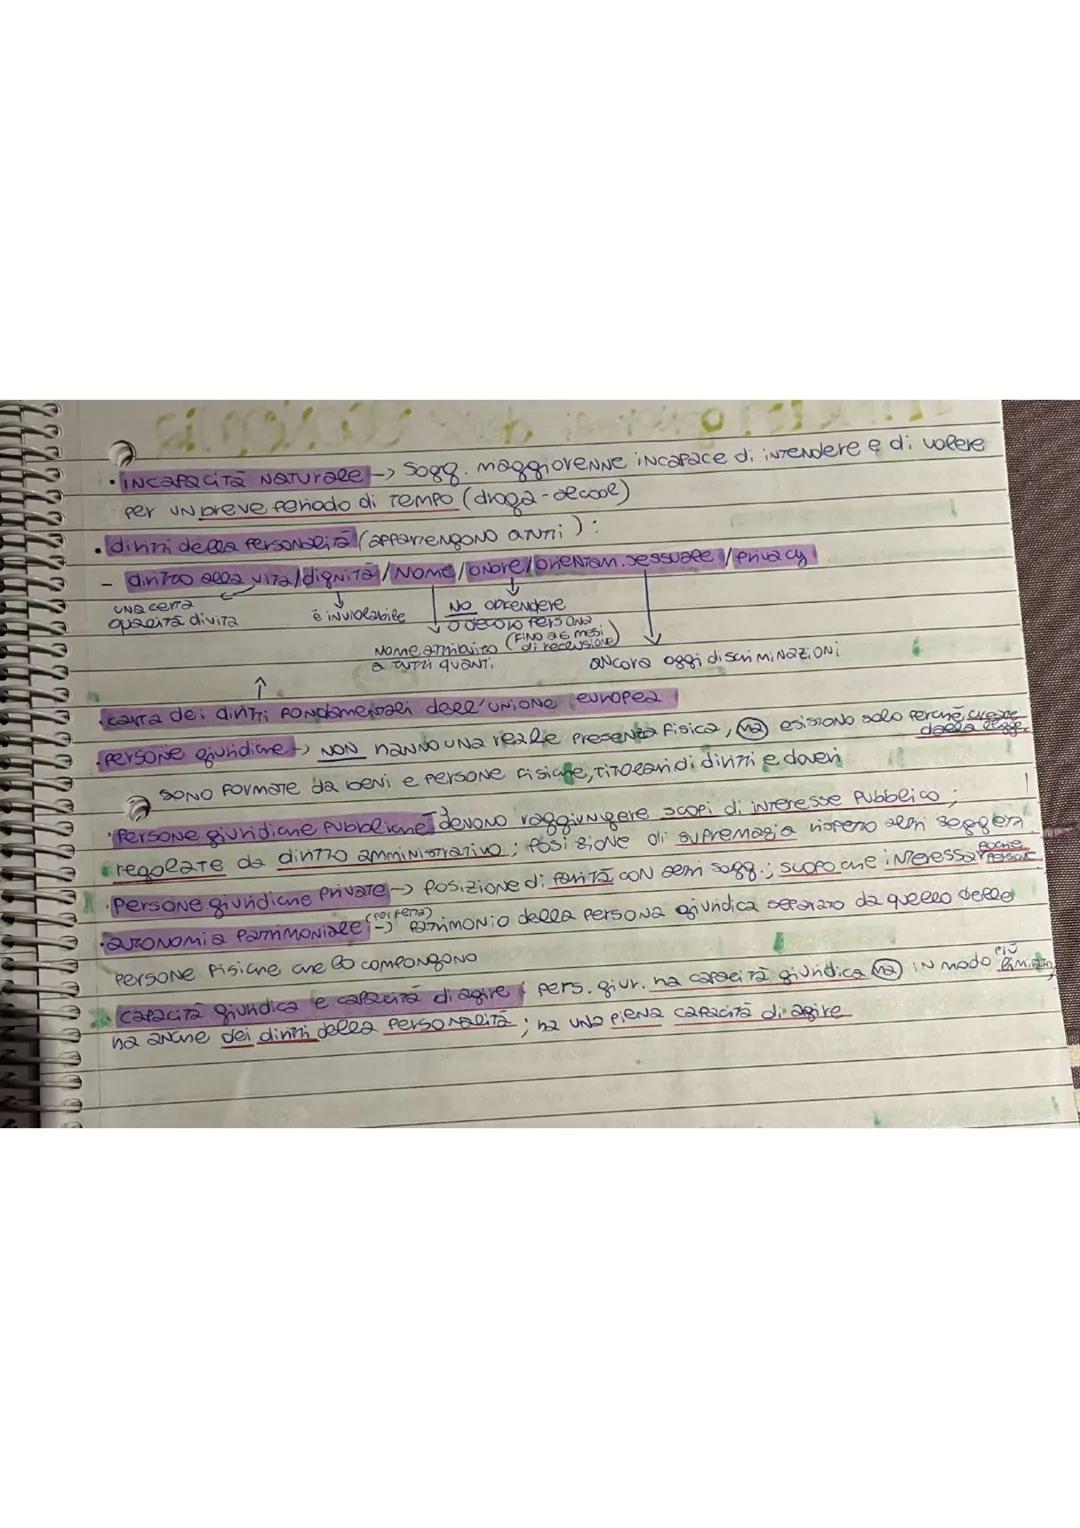 • INCAPACITÀ NATURALE -> Sogg. maggiorenne incapace di intendere e di volere
per un breve periodo di tempo (droga - alcool)
• diritti della personalità (appartengono a tutti):
- diritto alla vita/dignità/Nome/onore/orientam. sessuale/privacy
una certa
qualità di vita
è inviolabile
No offendere
o decoro persona
(fino a 6 mesi
di reclusione)
Nome attribuito
a tutti quanti
ancora oggi discriminazioni
• carta dei diritti fondamentali dell'unione europea
• persone giuridiche -> NON hanno una reale presenza fisica, ma esistono solo perché create
dalla legge
sono formate da beni e persone fisiche, titolari di diritti e doveri
• Persone giuridiche pubbliche devono raggiungere scopi di interesse pubblico;
regolate da diritto amministrativo; posizione di supremazia rispetto altri soggetti
• persone giuridiche private -> posizione di parità con altri sogg.; scopo che interessa poche
persone
• autonomia patrimoniale (perfetta) -> patrimonio della persona giuridica separato da quello delle
persone fisiche che lo compongono
• capacità giuridica e capacità di agire: pers. giur. ha capacità giuridica ma in modo più
limitato,
ha anche dei diritti della personalità; ha una piena capacità di agire